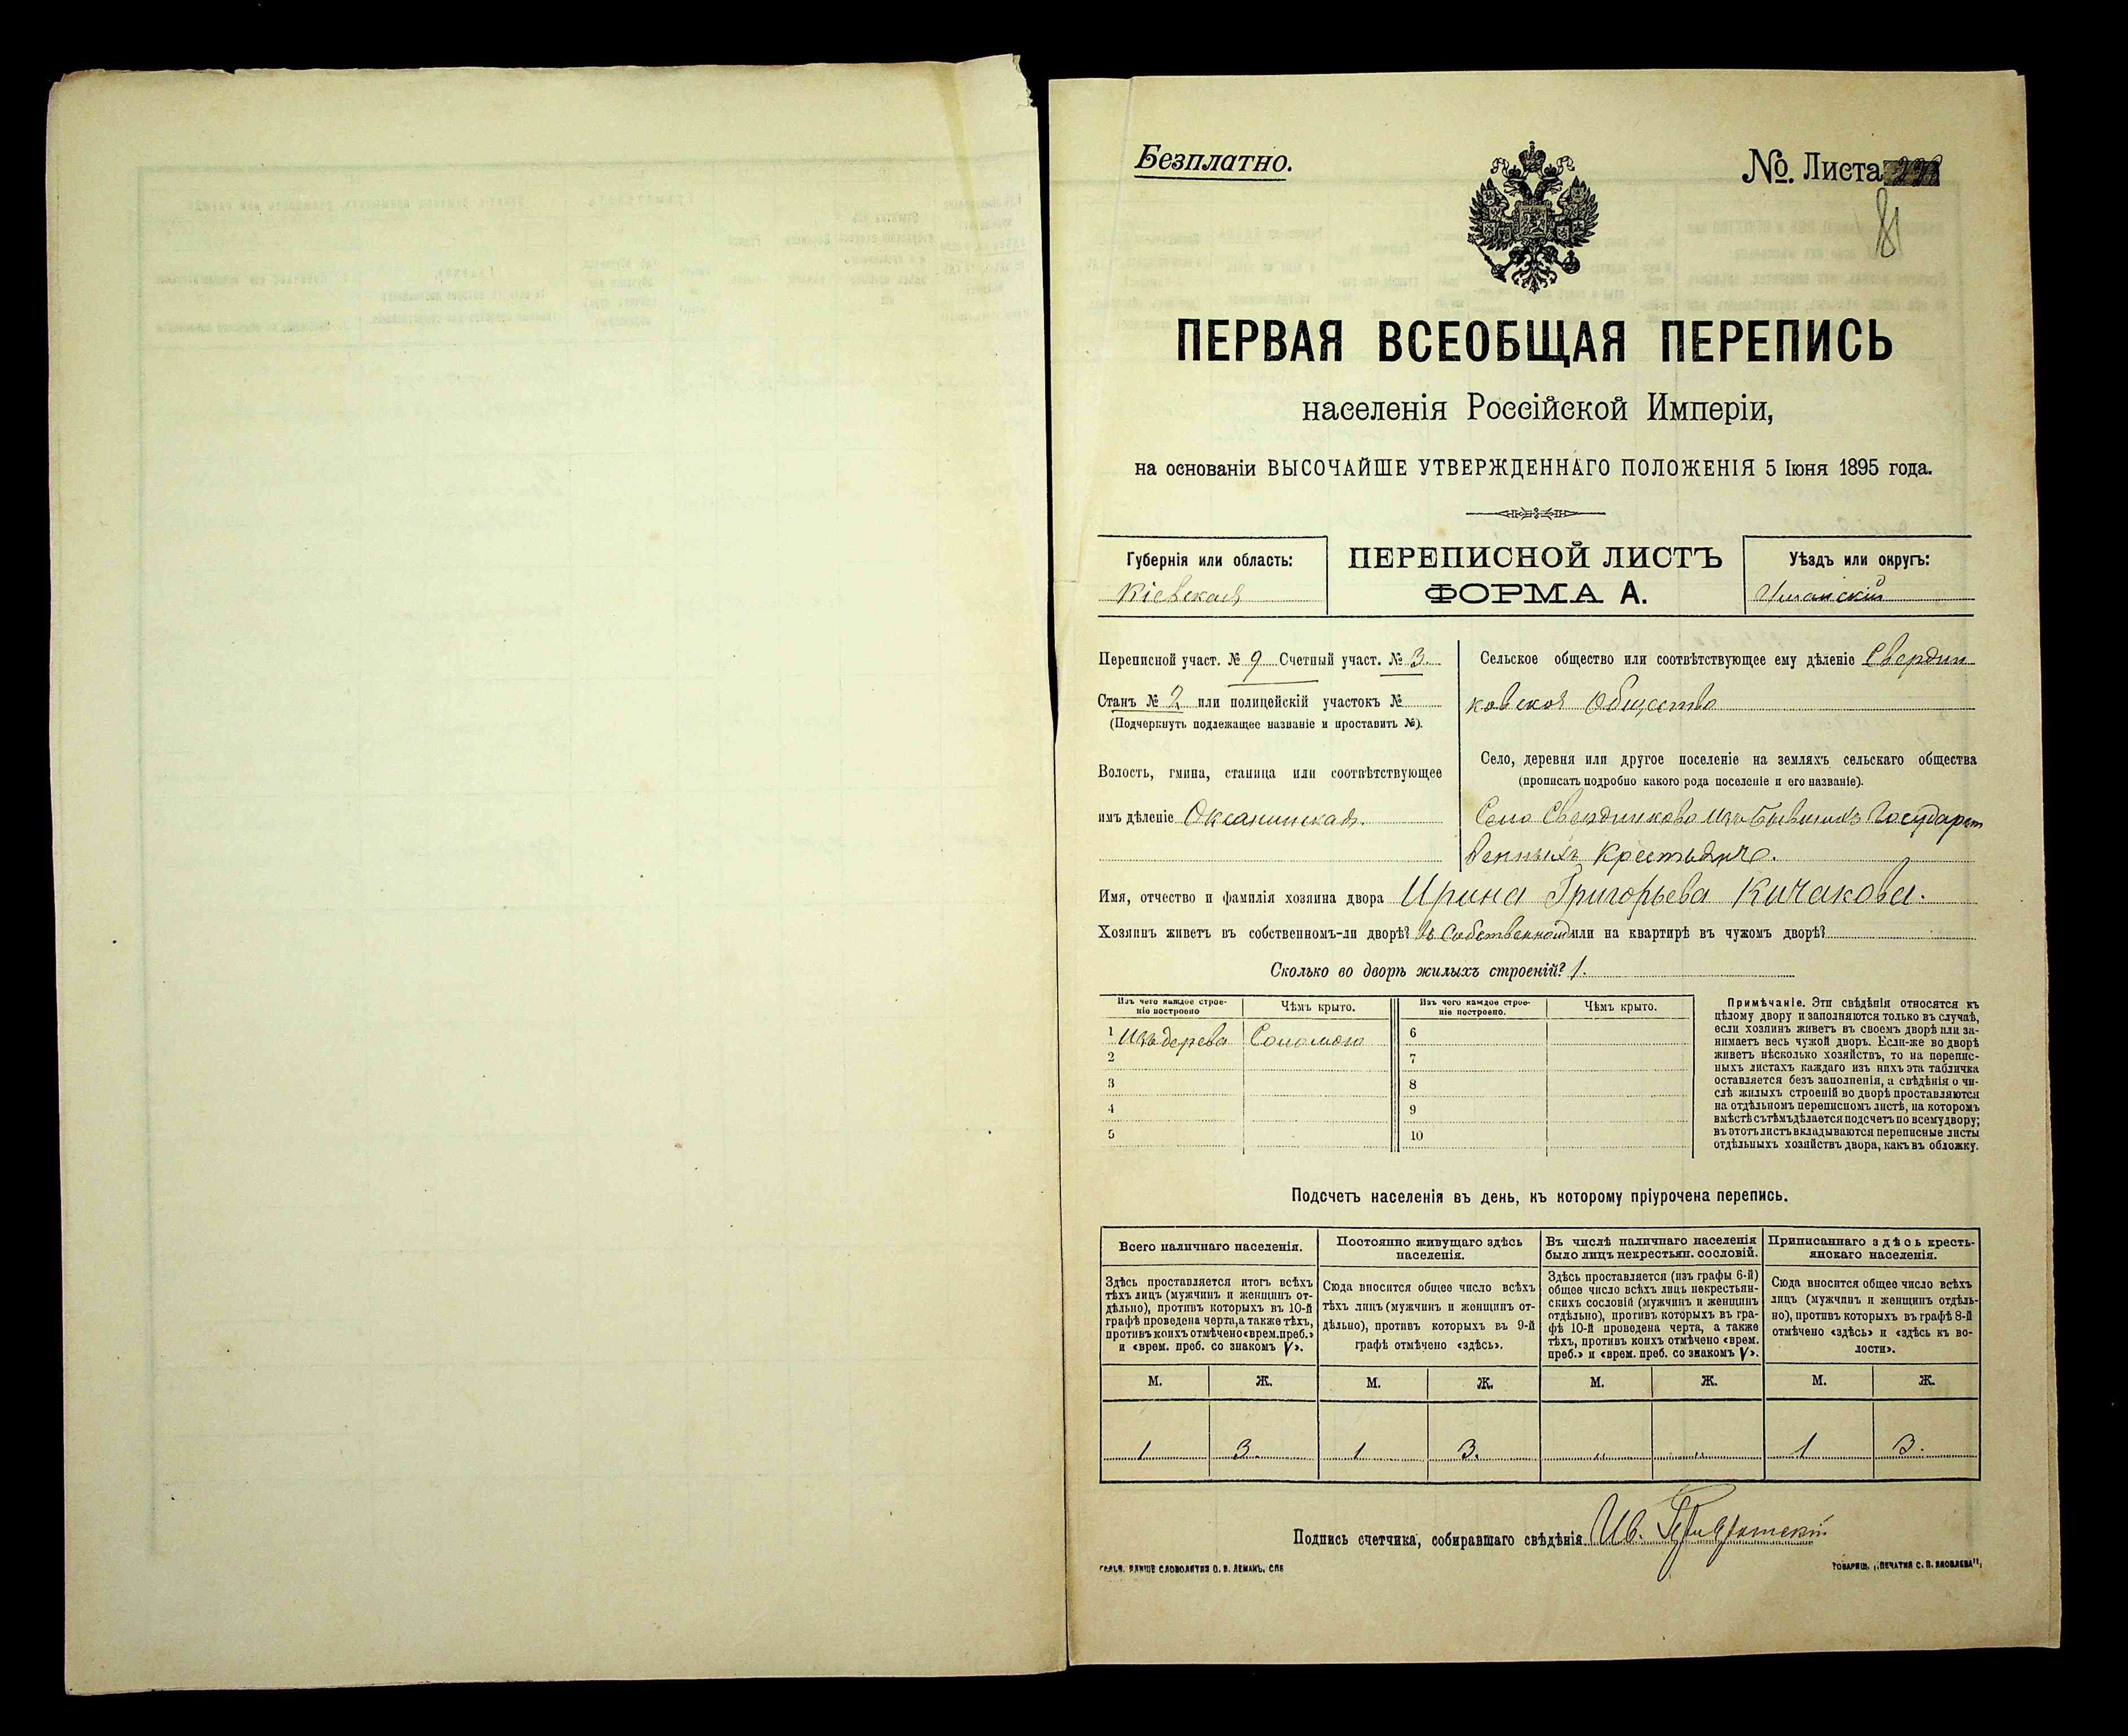 Безплатно.
No. Листа
81
ПЕРВАЯ ВСЕОБЩАЯ ПЕРЕПИСЬ
населенія Россійской Имперіи,
на основаніи ВЫСОЧАЙШЕ УТВЕРЖДЕННАГО ПОЛОЖЕНІЯ 5 Іюня 1895 года.
Губернія или область:
Кіевская
ПЕРЕПИСНОЙ ЛИСТЪ
ФОРМА А.
Уѣздъ или округъ:
Уманскій
Переписной участ. № 9 Счетный участ. № 3.
Станъ № 2 или полицейскій участокъ №
(Подчеркнуть подлежащее названіе и проставить №).
Волость, гмина, станица или соотвѣтствующее
имъ дѣленіе Оксанинская.
Сельское общество или соотвѣтствующее ему дѣленіе Свердли
ковское Общество
Село, деревня или другое поселеніе на земляхъ сельскаго общества
(прописать подробно какого рода поселеніе и его названіе).
Село Свердликово изъ бывшихъ Государст
венныхъ Крестьянъ.
Имя, отчество и фамилія хозяина двора Ирина Григорьева Кичакова.
Хозяинъ живетъ въ собственномъ-ли дворѣ? въ Собственномъ или на квартирѣ въ чужомъ дворѣ?
Сколько во дворѣ жилыхъ строеній? 1.
Изъ чего каждое строе-
ніе построено
Чѣмъ крыто.
Изъ чего каждое строе-
ніе построено.
Чѣмъ крыто.
1 Изъ дерева Соломою
2
3
4
5
6
7
8
9
10
Примѣчаніе. Эти свѣдѣнія относятся къ
цѣлому двору и заполняются только въ случаѣ,
если хозяинъ живетъ въ своемъ дворѣ или за-
нимаетъ весь чужой дворъ. Если-же во дворѣ
живетъ нѣсколько хозяйствъ, то на перепис-
ныхъ листахъ каждаго изъ нихъ эта табличка
оставляется безъ заполненія, а свѣдѣнія о чи-
слѣ жилыхъ строеній во дворѣ проставляются
на отдѣльномъ переписномъ листѣ, на которомъ
вмѣстѣ съ тѣмъ дѣлается подсчетъ по всему двору;
въ этотъ листъ вкладываются переписные листы
отдѣльныхъ хозяйствъ двора, какъ въ обложку.
Подсчетъ населенія въ день, къ которому пріурочена перепись.
Всего наличнаго населенія.
Здѣсь проставляется итогъ всѣхъ
тѣхъ лицъ (мужчинъ и женщинъ от-
дѣльно), противъ которыхъ въ 10-й
графѣ проведена черта, а также тѣхъ,
противъ коихъ отмѣчено «врем. преб.»
и «врем. преб. со знакомъ V».
Постоянно живущаго здѣсь
населенія.
Сюда вносится общее число всѣхъ
тѣхъ лицъ (мужчинъ и женщинъ от-
дѣльно), противъ которыхъ въ 9-й
графѣ отмѣчено «здѣсь».
Въ числѣ наличнаго населенія
было лицъ некрестьян. сословій.
Здѣсь проставляется (изъ графы 6-й)
общее число всѣхъ лицъ некрестьян-
скихъ сословій (мужчинъ и женщинъ
отдѣльно), противъ которыхъ въ гра-
фѣ 10-й проведена черта, а также
тѣхъ, противъ коихъ отмѣчено «врем.
преб.» и «врем. преб. со знакомъ V».
Приписаннаго здѣсь кресть-
янскаго населенія.
Сюда вносится общее число всѣхъ
лицъ (мужчинъ и женщинъ отдѣль-
но), противъ которыхъ въ графѣ 8-й
отмѣчено «здѣсь» и «здѣсь къ во-
лости».
М. Ж. М. Ж. М. Ж. М. Ж.
1 3. 1 3. " " 1 3.
Подпись счетчика, собиравшаго свѣдѣнія Ив.
СЛОВОЛИТНЯ О. И. ЛЕМАНЪ, СПБ
ТОВАРИЩ. „ПЕЧАТНЯ С. П. ЯКОВЛЕВА“,